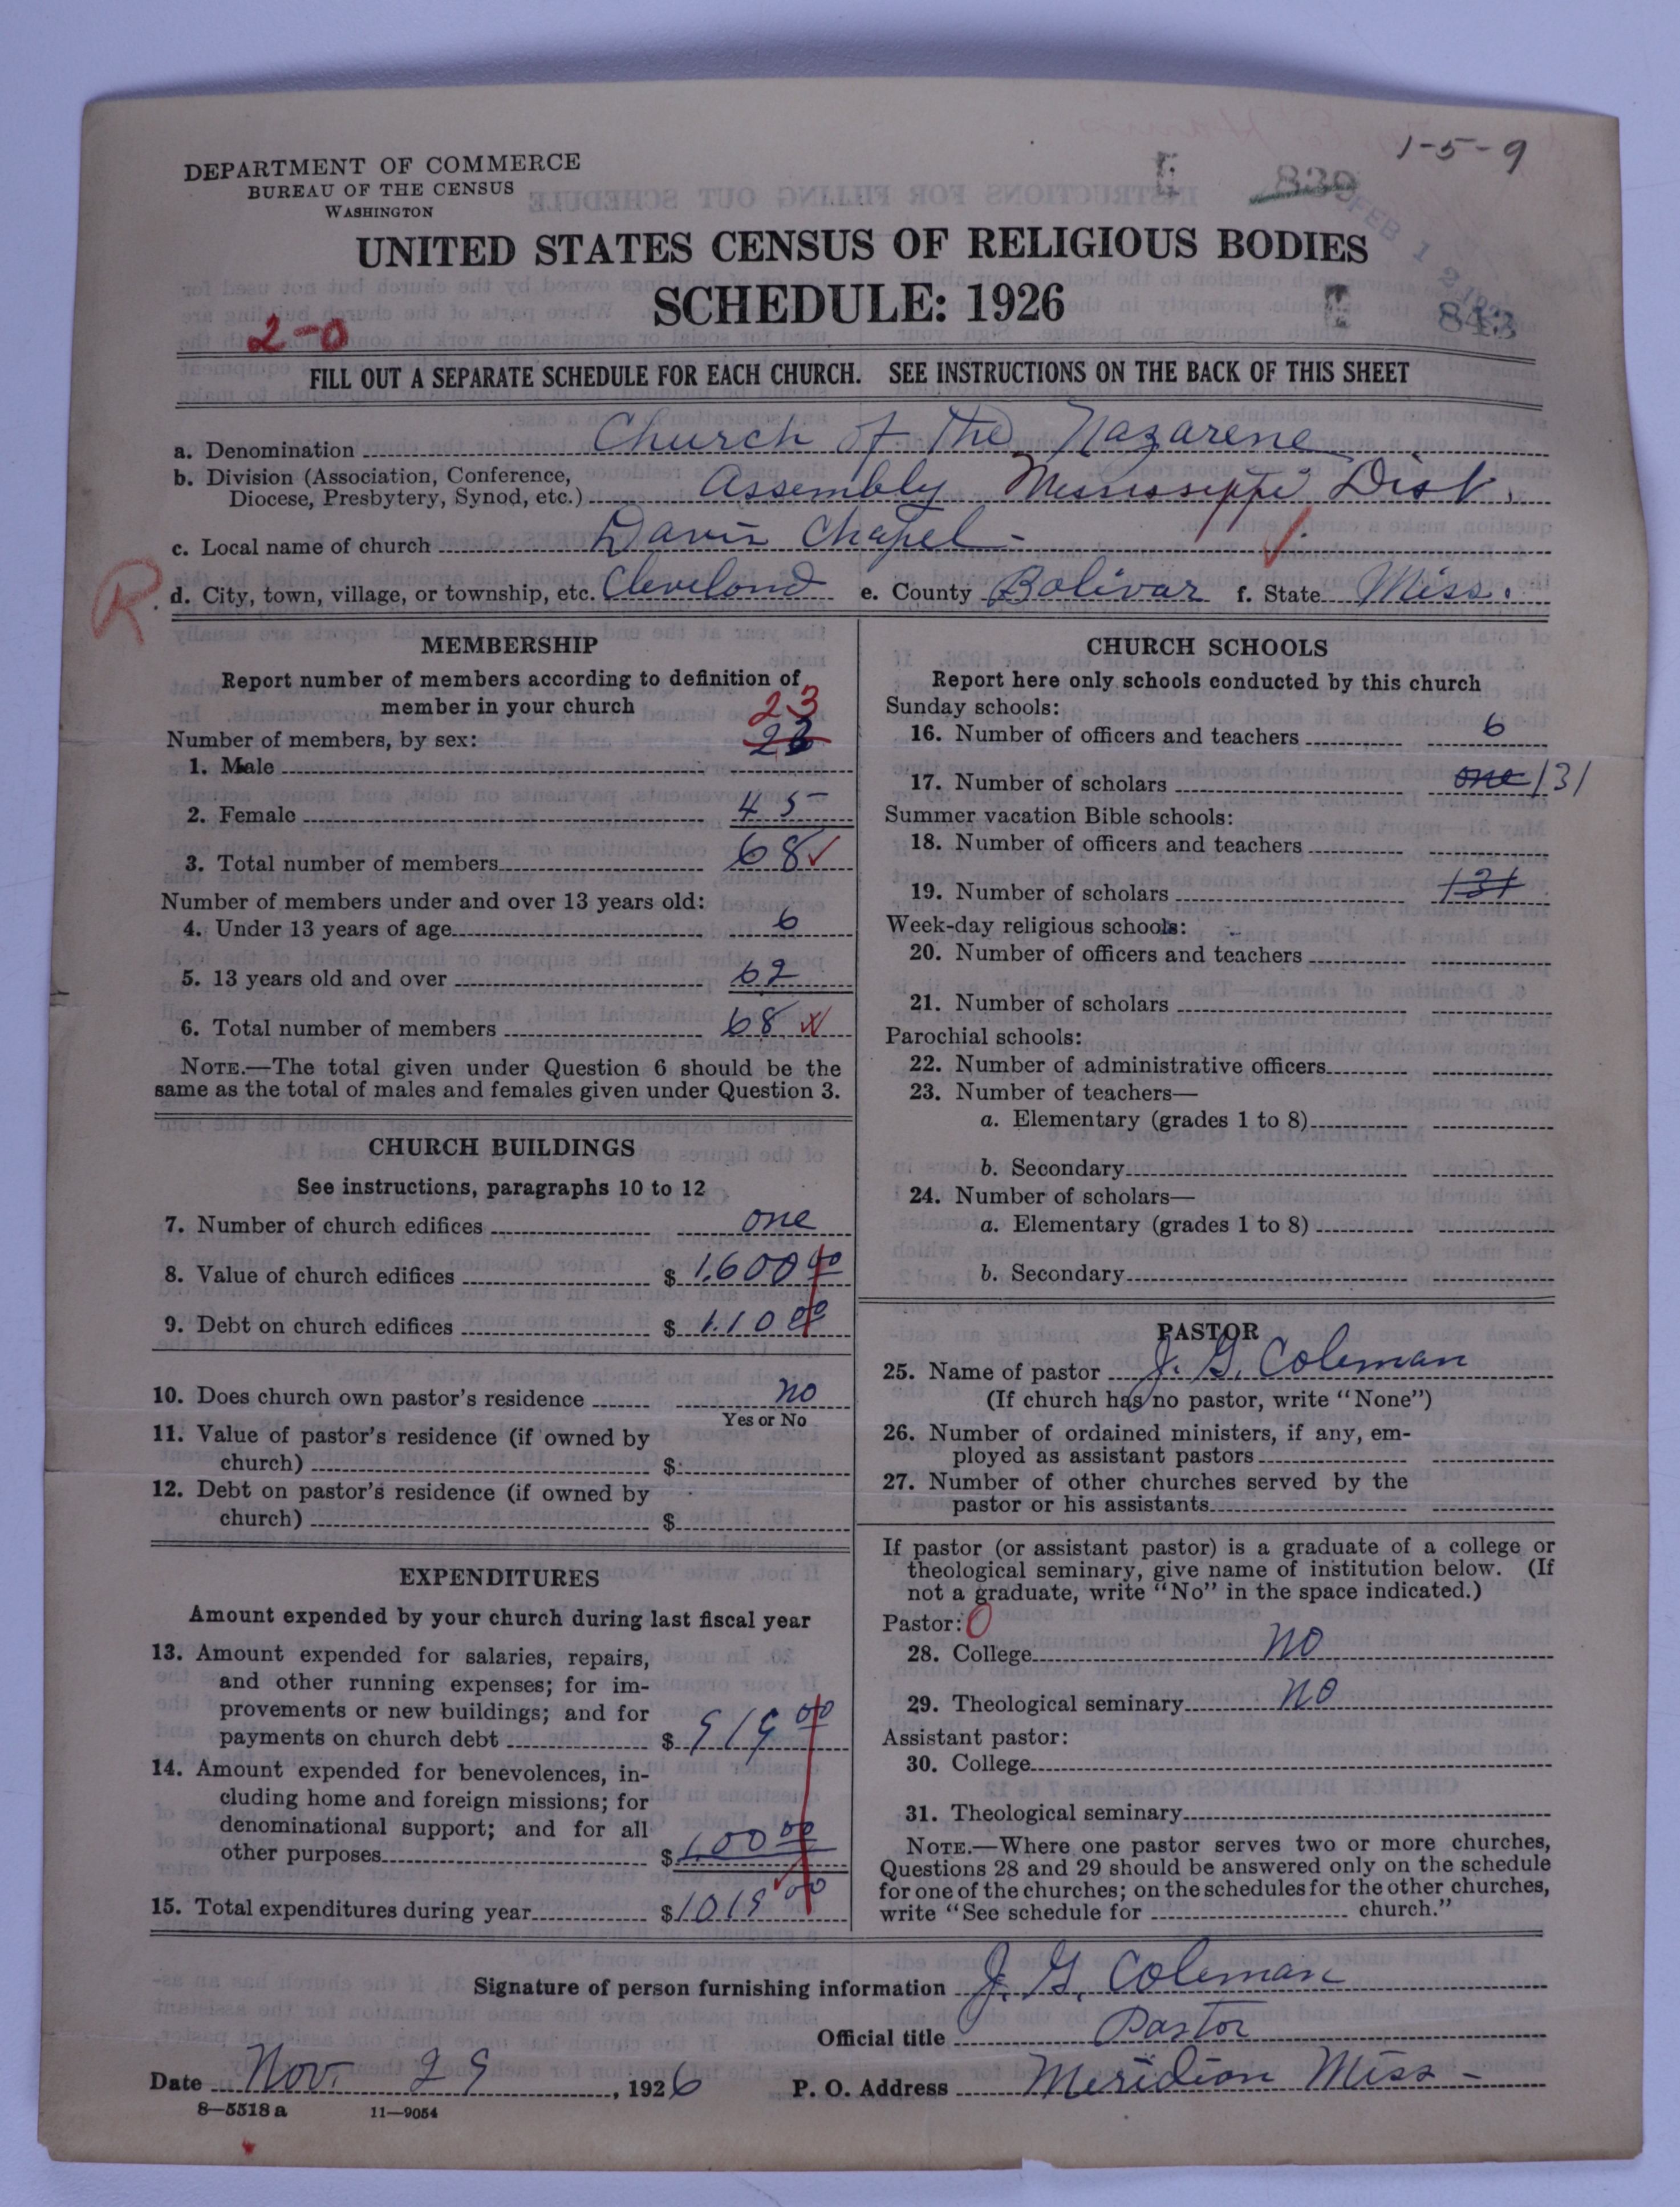 1-5-9
DEPARTMENT OF COMMERCE
BUREAU OF THE CENSUS
WASHINGTON
839
FEB 1 2
UNITED STATES CENSUS OF RELIGIOUS BODIES
SCHEDULE: 1926
843
2-0
FILL OUT A SEPARATE SCHEDULE FOR EACH CHURCH. SEE INSTRUCTIONS ON THE BACK OF THIS SHEET
a. Denomination Church of the Nazarene
b. Division (Association, Conference,
Diocese, Presbytery, Synod, etc.) Assembly Mississippi Dist.
c. Local name of church Davis Chapel -
R
d. City, town, village, or township, etc. Cleveland e. County Bolivar f. State Miss.
MEMBERSHIP
Report number of members according to definition of
member in your church
23
Number of members, by sex:
1. Male
2. Female 45
3. Total number of members 68 ✓
Number of members under and over 13 years old:
4. Under 13 years of age 6
5. 13 years old and over 62
6. Total number of members 68
NOTE.—The total given under Question 6 should be the
same as the total of males and females given under Question 3.
CHURCH BUILDINGS
See instructions, paragraphs 10 to 12
7. Number of church edifices one
8. Value of church edifices $ 1,600 00
9. Debt on church edifices $ 110 00
10. Does church own pastor's residence no
Yes or No
11. Value of pastor's residence (if owned by
church) $
12. Debt on pastor's residence (if owned by
church) $
EXPENDITURES
Amount expended by your church during last fiscal year
13. Amount expended for salaries, repairs,
and other running expenses; for im-
provements or new buildings; and for
payments on church debt $ 919 00
14. Amount expended for benevolences, in-
cluding home and foreign missions; for
denominational support; and for all
other purposes $ 100 00
15. Total expenditures during year $ 1019 00
CHURCH SCHOOLS
Report here only schools conducted by this church
Sunday schools:
16. Number of officers and teachers 6
17. Number of scholars one 131
Summer vacation Bible schools:
18. Number of officers and teachers
19. Number of scholars 131
Week-day religious schools:
20. Number of officers and teachers
21. Number of scholars
Parochial schools:
22. Number of administrative officers
23. Number of teachers—
a. Elementary (grades 1 to 8)
b. Secondary
24. Number of scholars—
a. Elementary (grades 1 to 8)
b. Secondary
PASTOR
25. Name of pastor J. G. Coleman
(If church has no pastor, write "None")
26. Number of ordained ministers, if any, em-
ployed as assistant pastors
27. Number of other churches served by the
pastor or his assistants
If pastor (or assistant pastor) is a graduate of a college or
theological seminary, give name of institution below. (If
not a graduate, write "No" in the space indicated.)
Pastor: 0
28. College no
29. Theological seminary no
Assistant pastor:
30. College
31. Theological seminary
NOTE.—Where one pastor serves two or more churches,
Questions 28 and 29 should be answered only on the schedule
for one of the churches; on the schedules for the other churches,
write "See schedule for church."
Signature of person furnishing information J. G. Coleman
Official title Pastor
Date Nov. 29, 1926 P. O. Address Meridian Miss -
8—5518 a 11—9054